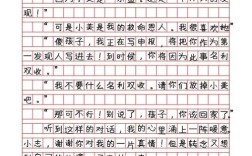 现！"
"可是小美是我的救命恩人。我很喜欢她
"傻孩子，我正在写申报，将把你作为第
一发现人写进去！到时候，你将因为此事名利
双收。"
"我不要什么名利双收。请你们放掉小美
吧。"
"那可不行！到说了，但该回家了。"
听到这样的对话，我的心里涌上一阵暖意
小志，谢谢你对我的一片真情！但是转念又想